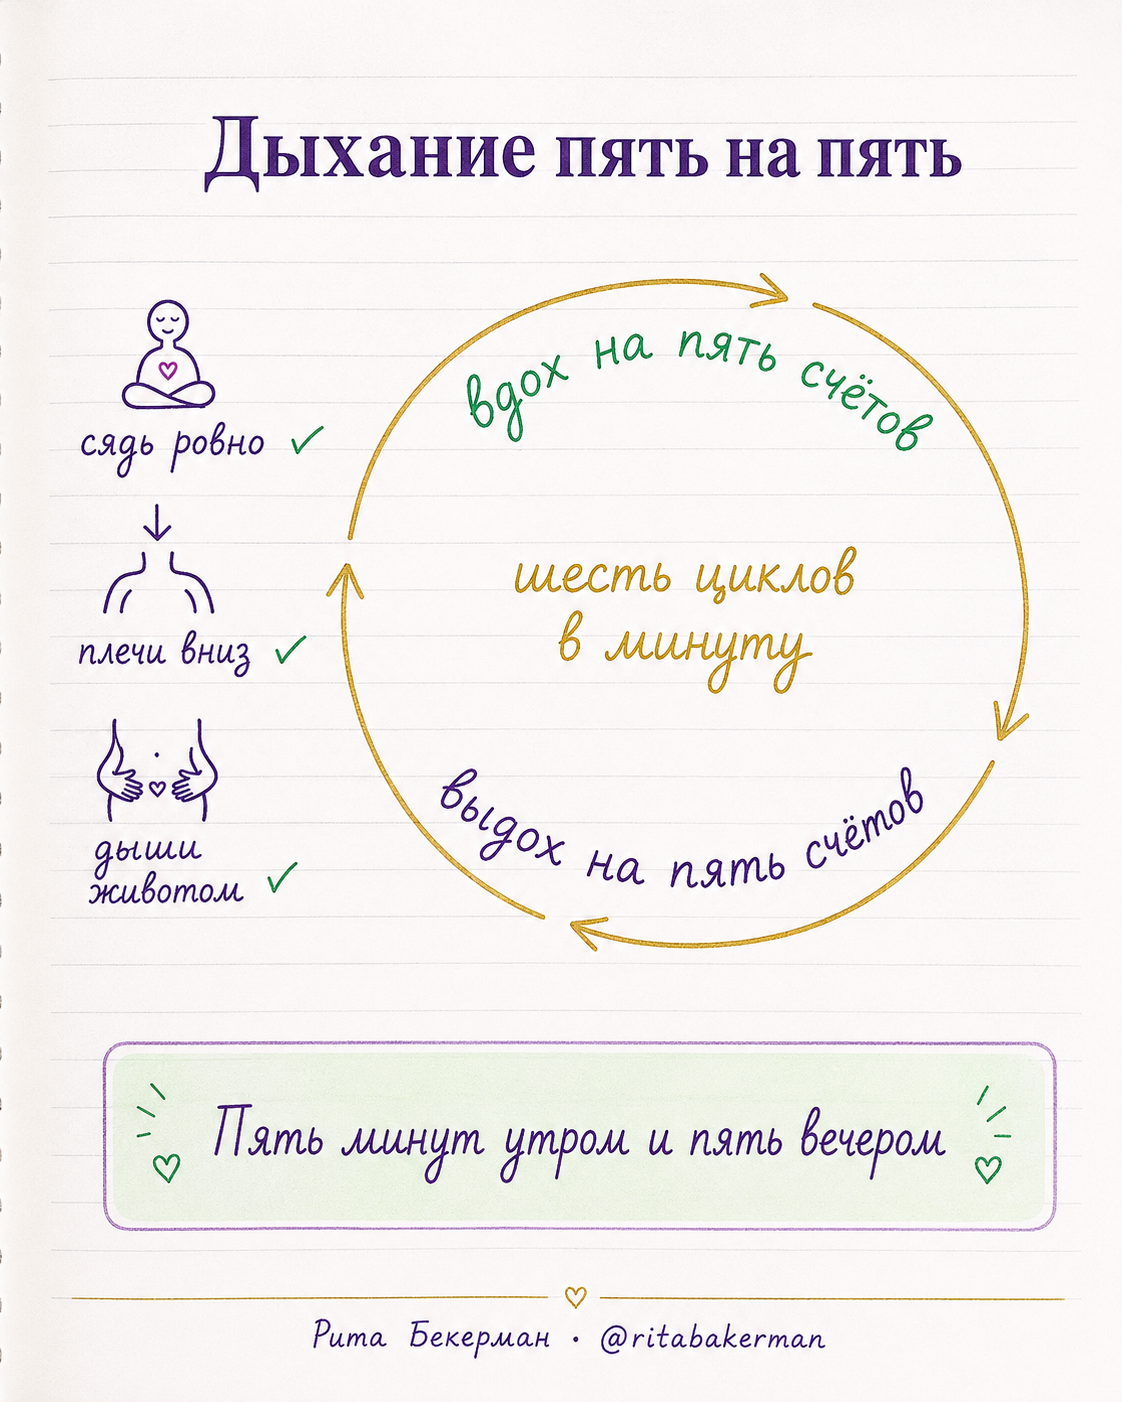 Дыхание пять на пять
сядь ровно
плечи вниз
дыши
животом
вдох на пять счётов
шесть циклов
в минуту
выдох на пять счётов
Пять минут утром и пять вечером
Рита Бекерман • @ritabakerman